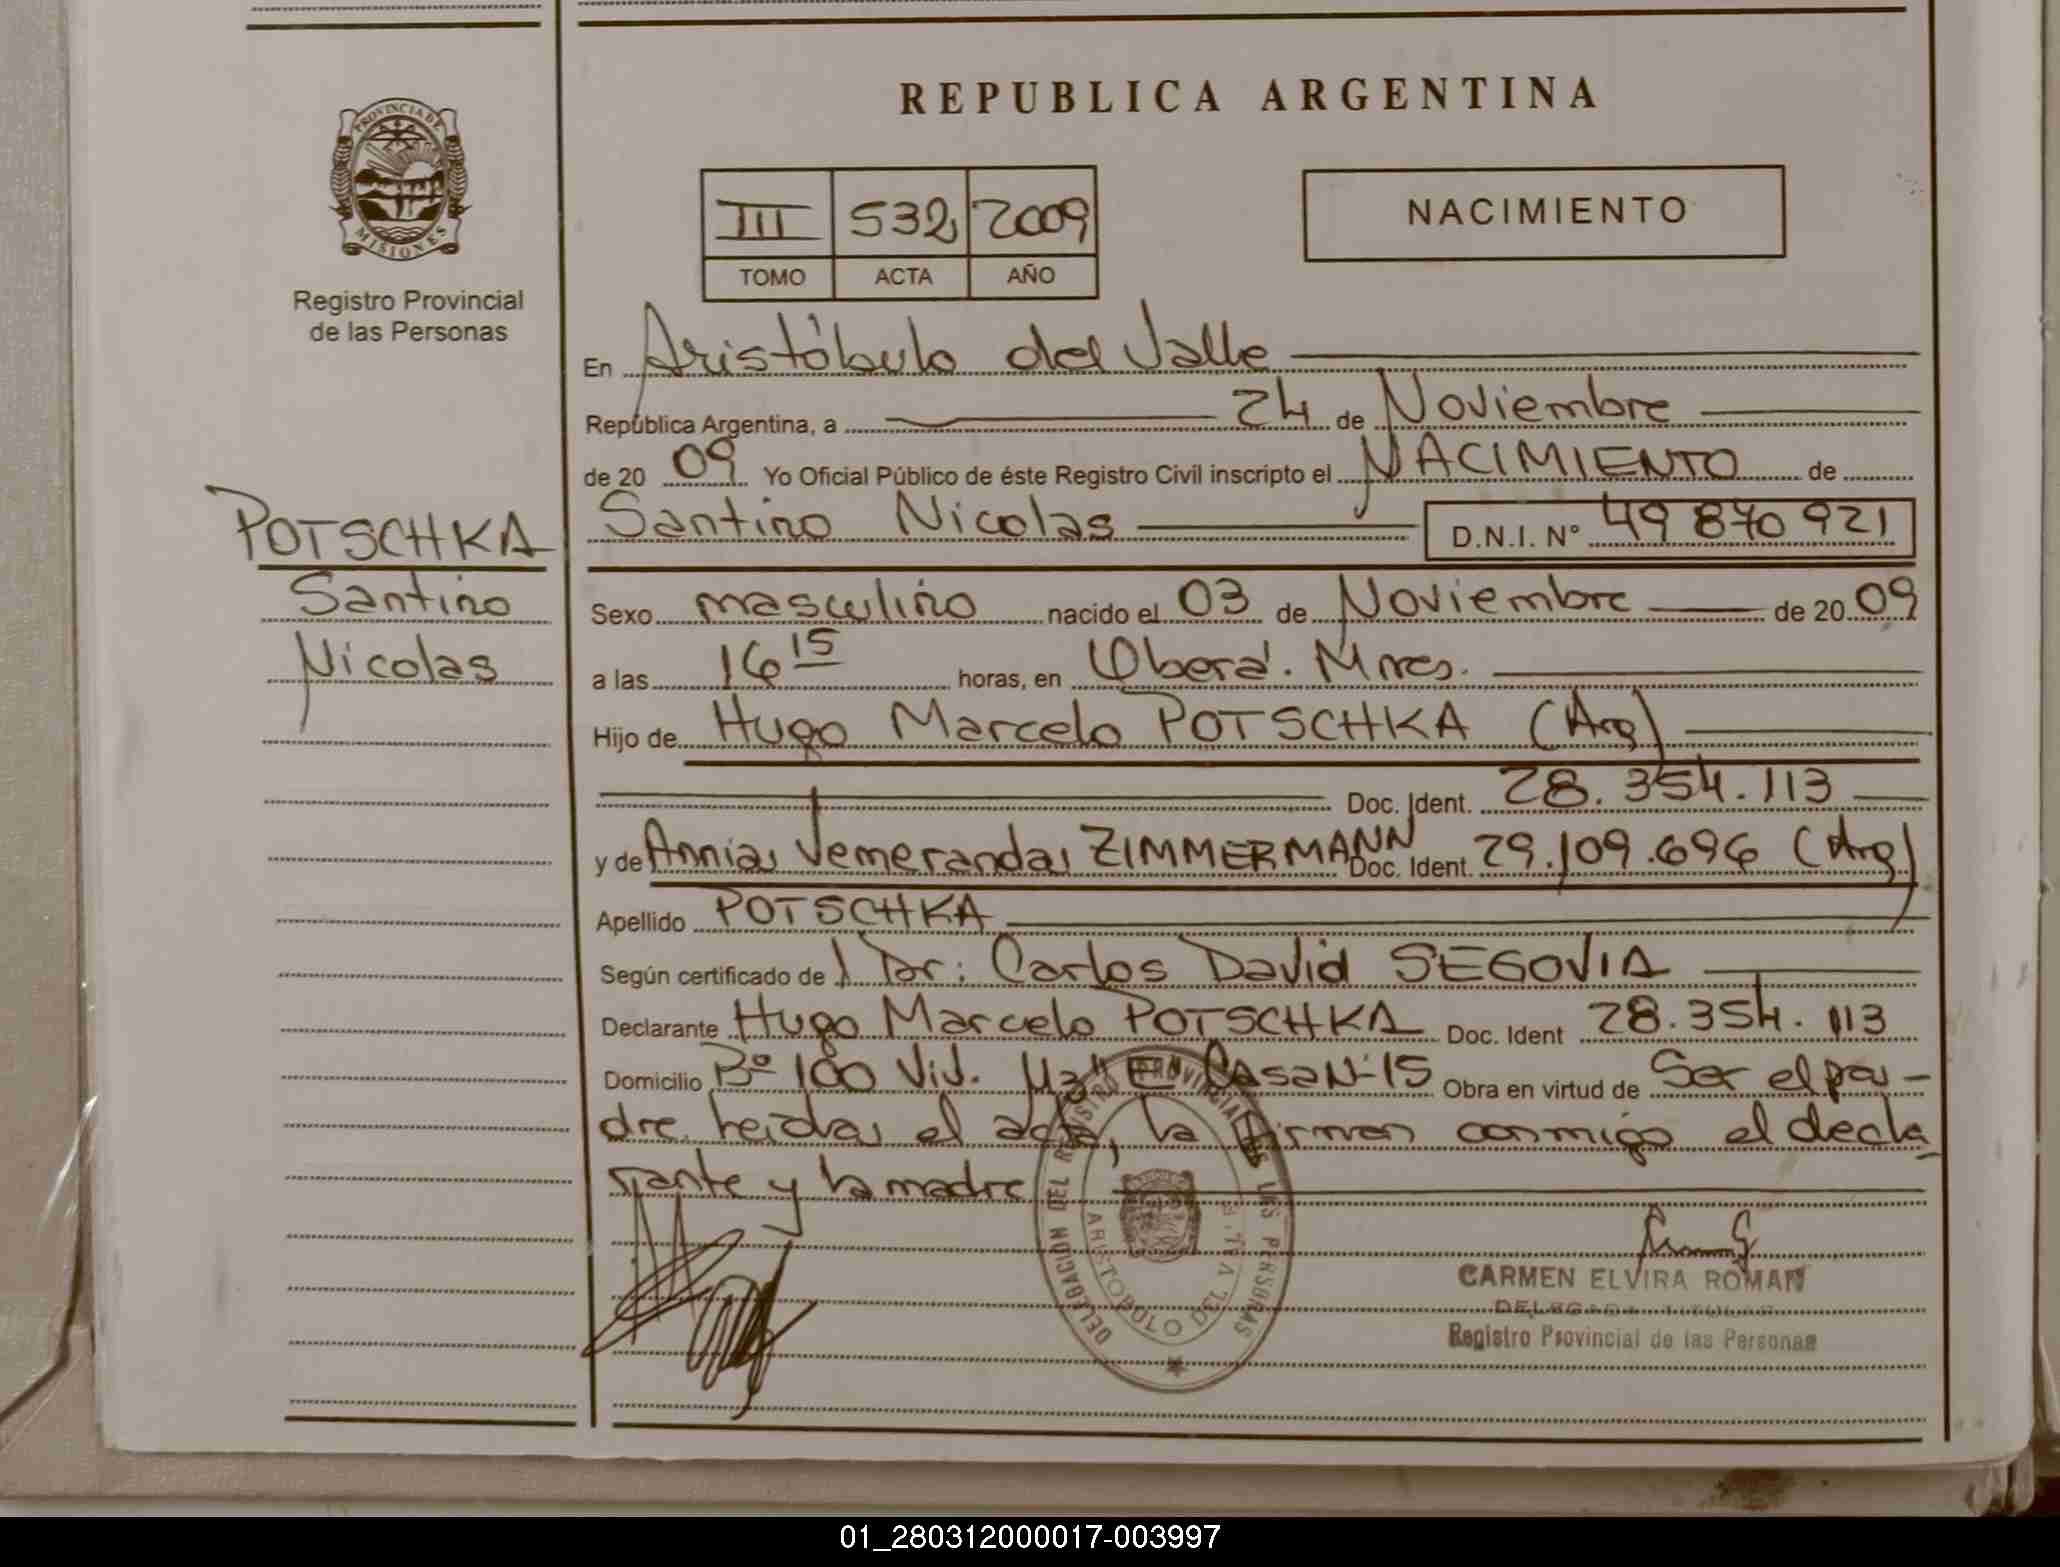 REPUBLICA ARGENTINA
PROVINCIA DE MISIONES
Registro Provincial
de las Personas
III 532 2009
TOMO ACTA AÑO
NACIMIENTO
En Aristóbulo del Valle
República Argentina, a 24 de Noviembre
de 20 09 Yo Oficial Público de éste Registro Civil inscripto el NACIMIENTO de
Santino Nicolas D.N.I. Nº 49 870 921
POTSCHKA
Santino
Nicolas
Sexo masculino nacido el 03 de Noviembre de 20 09
a las 16 15 horas, en Oberá. Mnes.
Hijo de Hugo Marcelo POTSCHKA (Arg)
Doc. Ident. 28.354.113
y de Annia Vemeranda ZIMMERMANN Doc. Ident. 29.109.696 (Arg)
Apellido POTSCHKA
Según certificado de Dr: Carlos David SEGOVIA
Declarante Hugo Marcelo POTSCHKA Doc. Ident 28.354.113
Domicilio Bº 100 Viv. "E" Casa Nº 15 Obra en virtud de Ser el pa-
dre leida el acta, la firman conmigo el decla
rante y la madre
DELEGACION DEL REGISTRO PROVINCIAL DE LAS PERSONAS
ARISTOBULO DEL VALLE
CARMEN ELVIRA ROMAN
DELEGADA TITULAR
Registro Provincial de las Personas
01_280312000017-003997